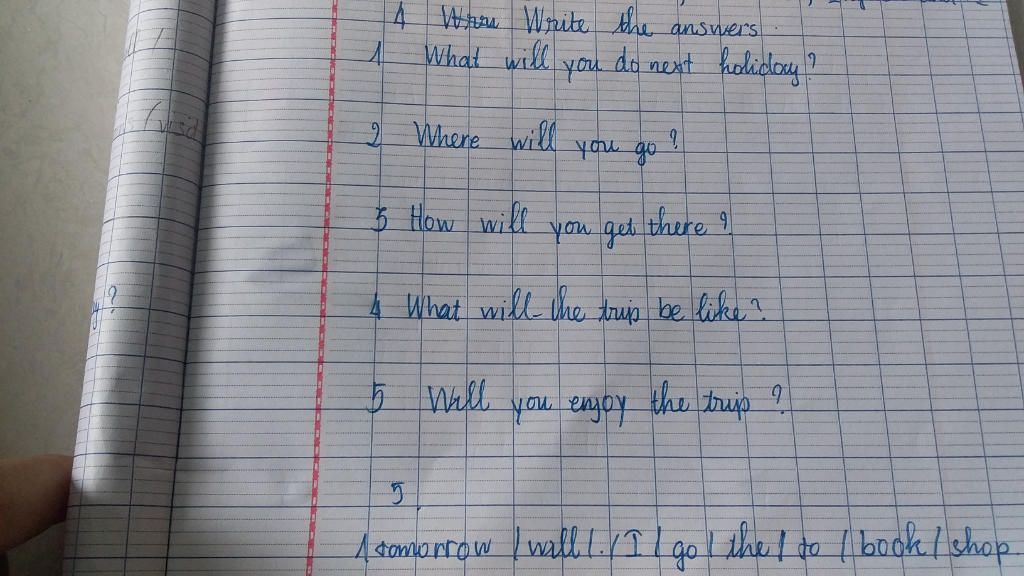 4 Write the answers.
1 What will you do next holiday?
2 Where will you go?
3 How will you get there?
4 What will the trip be like?
5 Will you enjoy the trip?
5.
1 tomorrow / will / . / I / go / the / to / book / shop
y?